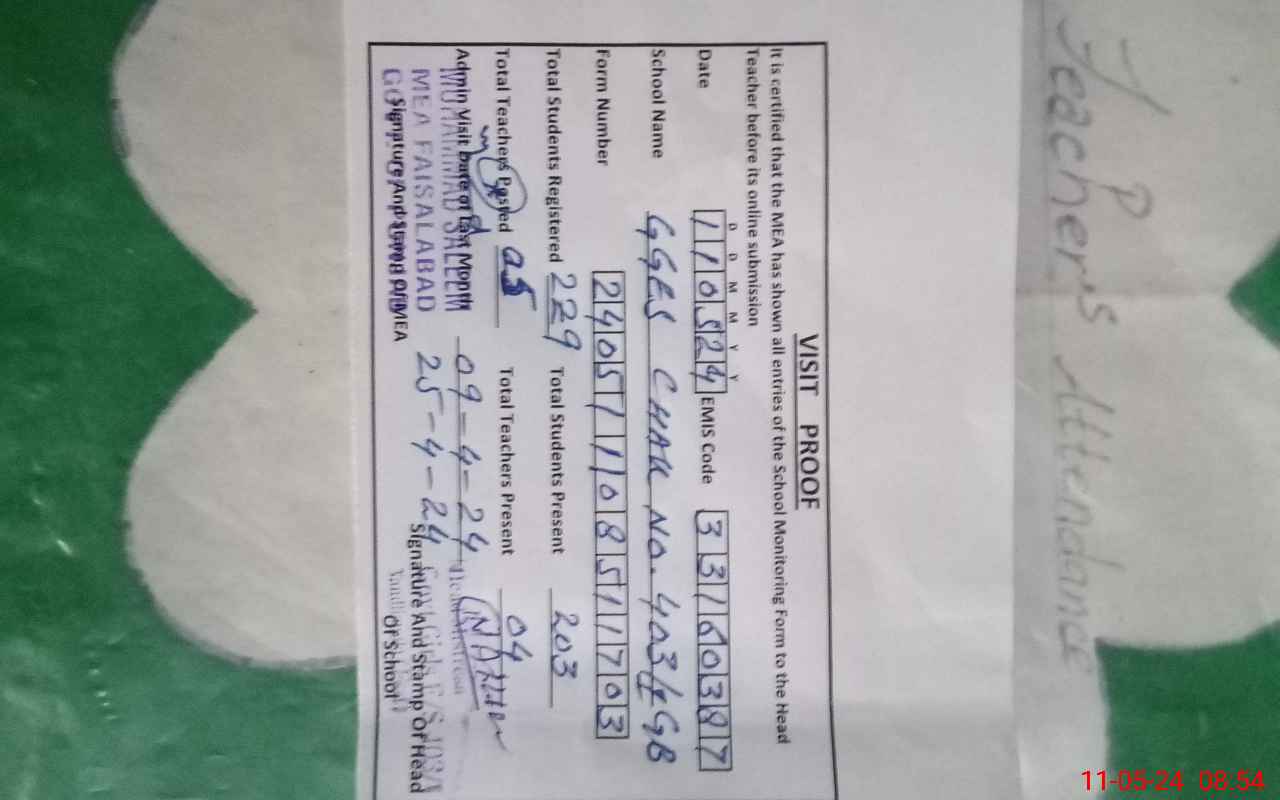 Teacher's Attendance
VISIT PROOF
It is certified that the MEA has shown all entries of the School Monitoring Form to the Head
Teacher before its online submission
D D M M Y Y
Date 110524 EMIS Code 33160387
School Name GGES CHAK NO. 403/ GB
Form Number 24051108511703
Total Students Registered 229 Total Students Present 203
Total Teachers Posted 05 Total Teachers Present 04
Admin Visit Date of Last Month 09-4-24
25-4-24
MUHAMMAD SALEEM
MEA FAISALABAD
Signature And Stamp Of MEA
Signature And Stamp Of Head
Of School
11-05-24 08:54